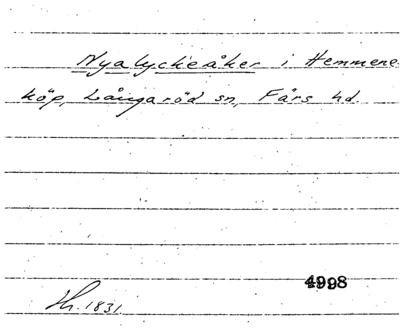 Nyalyckeåker i Hemmene
köp, Långaröd sn, Färs hd.
4998
Hr. 1831.